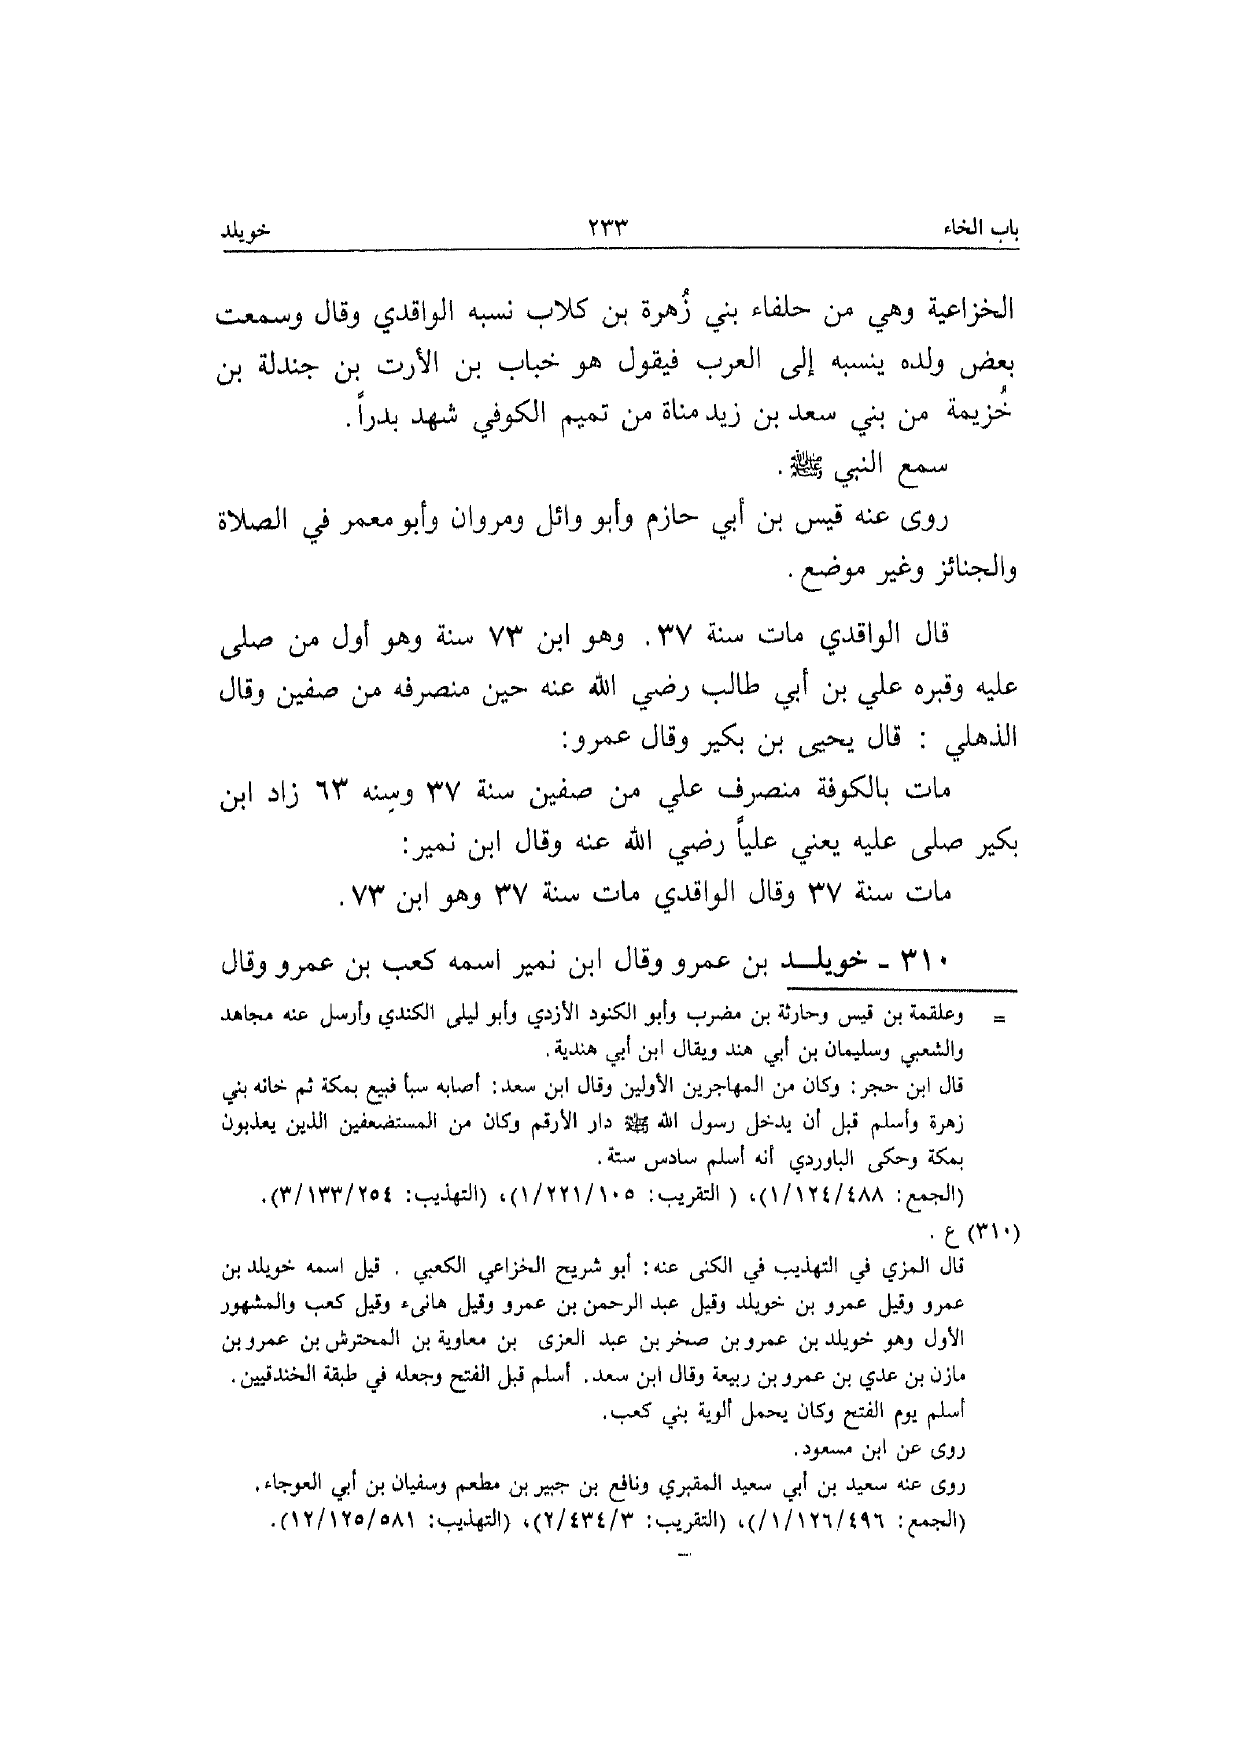 باب الخاء ٢٣٣ خويلد
الخزاعية وهي من حلفاء بني زُهرة بن كلاب نسبه الواقدي وقال وسمعت
بعض ولده ينسبه إلى العرب فيقول هو خباب بن الأرت بن جندلة بن
خُزيمة من بني سعد بن زيد مناة من تميم الكوفي شهد بدراً.
سمع النبي ﷺ.
روى عنه قيس بن أبي حازم وأبو وائل ومروان وأبو معمر في الصلاة
والجنائز وغير موضع.
قال الواقدي مات سنة ٣٧. وهو ابن ٧٣ سنة وهو أول من صلى
عليه وقبره علي بن أبي طالب رضي الله عنه حين منصرفه من صفين وقال
الذهلي : قال يحيى بن بكير وقال عمرو:
مات بالكوفة منصرف علي من صفين سنة ٣٧ وسنه ٦٣ زاد ابن
بكير صلى عليه يعني علياً رضي الله عنه وقال ابن نمير:
مات سنة ٣٧ وقال الواقدي مات سنة ٣٧ وهو ابن ٧٣.
٣١٠ - خويلـد بن عمرو وقال ابن نمير اسمه كعب بن عمرو وقال
= وعلقمة بن قيس وحارثة بن مضرب وأبو الكنود الأزدي وأبو ليلى الكندي وأرسل عنه مجاهد
والشعبي وسليمان بن أبي هند ويقال ابن أبي هندية.
قال ابن حجر: وكان من المهاجرين الأولين وقال ابن سعد: أصابه سبأ فبيع بمكة ثم خانه بني
زهرة وأسلم قبل أن يدخل رسول الله ﷺ دار الأرقم وكان من المستضعفين الذين يعذبون
بمكة وحكى الباوردي أنه أسلم سادس ستة.
(الجمع: ١/١٢٤/٤٨٨)، ( التقريب: ١/٢٢١/١٠٥)، (التهذيب: ٣/١٣٣/٢٥٤).
(٣١٠) ع .
قال المزي في التهذيب في الكنى عنه: أبو شريح الخزاعي الكعبي . قيل اسمه خويلد بن
عمرو وقيل عمرو بن خويلد وقيل عبد الرحمن بن عمرو وقيل هانىء وقيل كعب والمشهور
الأول وهو خويلد بن عمرو بن صخر بن عبد العزى بن معاوية بن المحترش بن عمرو بن
مازن بن عدي بن عمرو بن ربيعة وقال ابن سعد. أسلم قبل الفتح وجعله في طبقة الخندقيين.
أسلم يوم الفتح وكان يحمل ألوية بني كعب.
روى عن ابن مسعود.
روى عنه سعيد بن أبي سعيد المقبري ونافع بن جبير بن مطعم وسفيان بن أبي العوجاء.
(الجمع: ١/١٢٦/٤٩٦/)، (التقريب: ٢/٤٣٤/٣)، (التهذيب: ١٢/١٢٥/٥٨١).